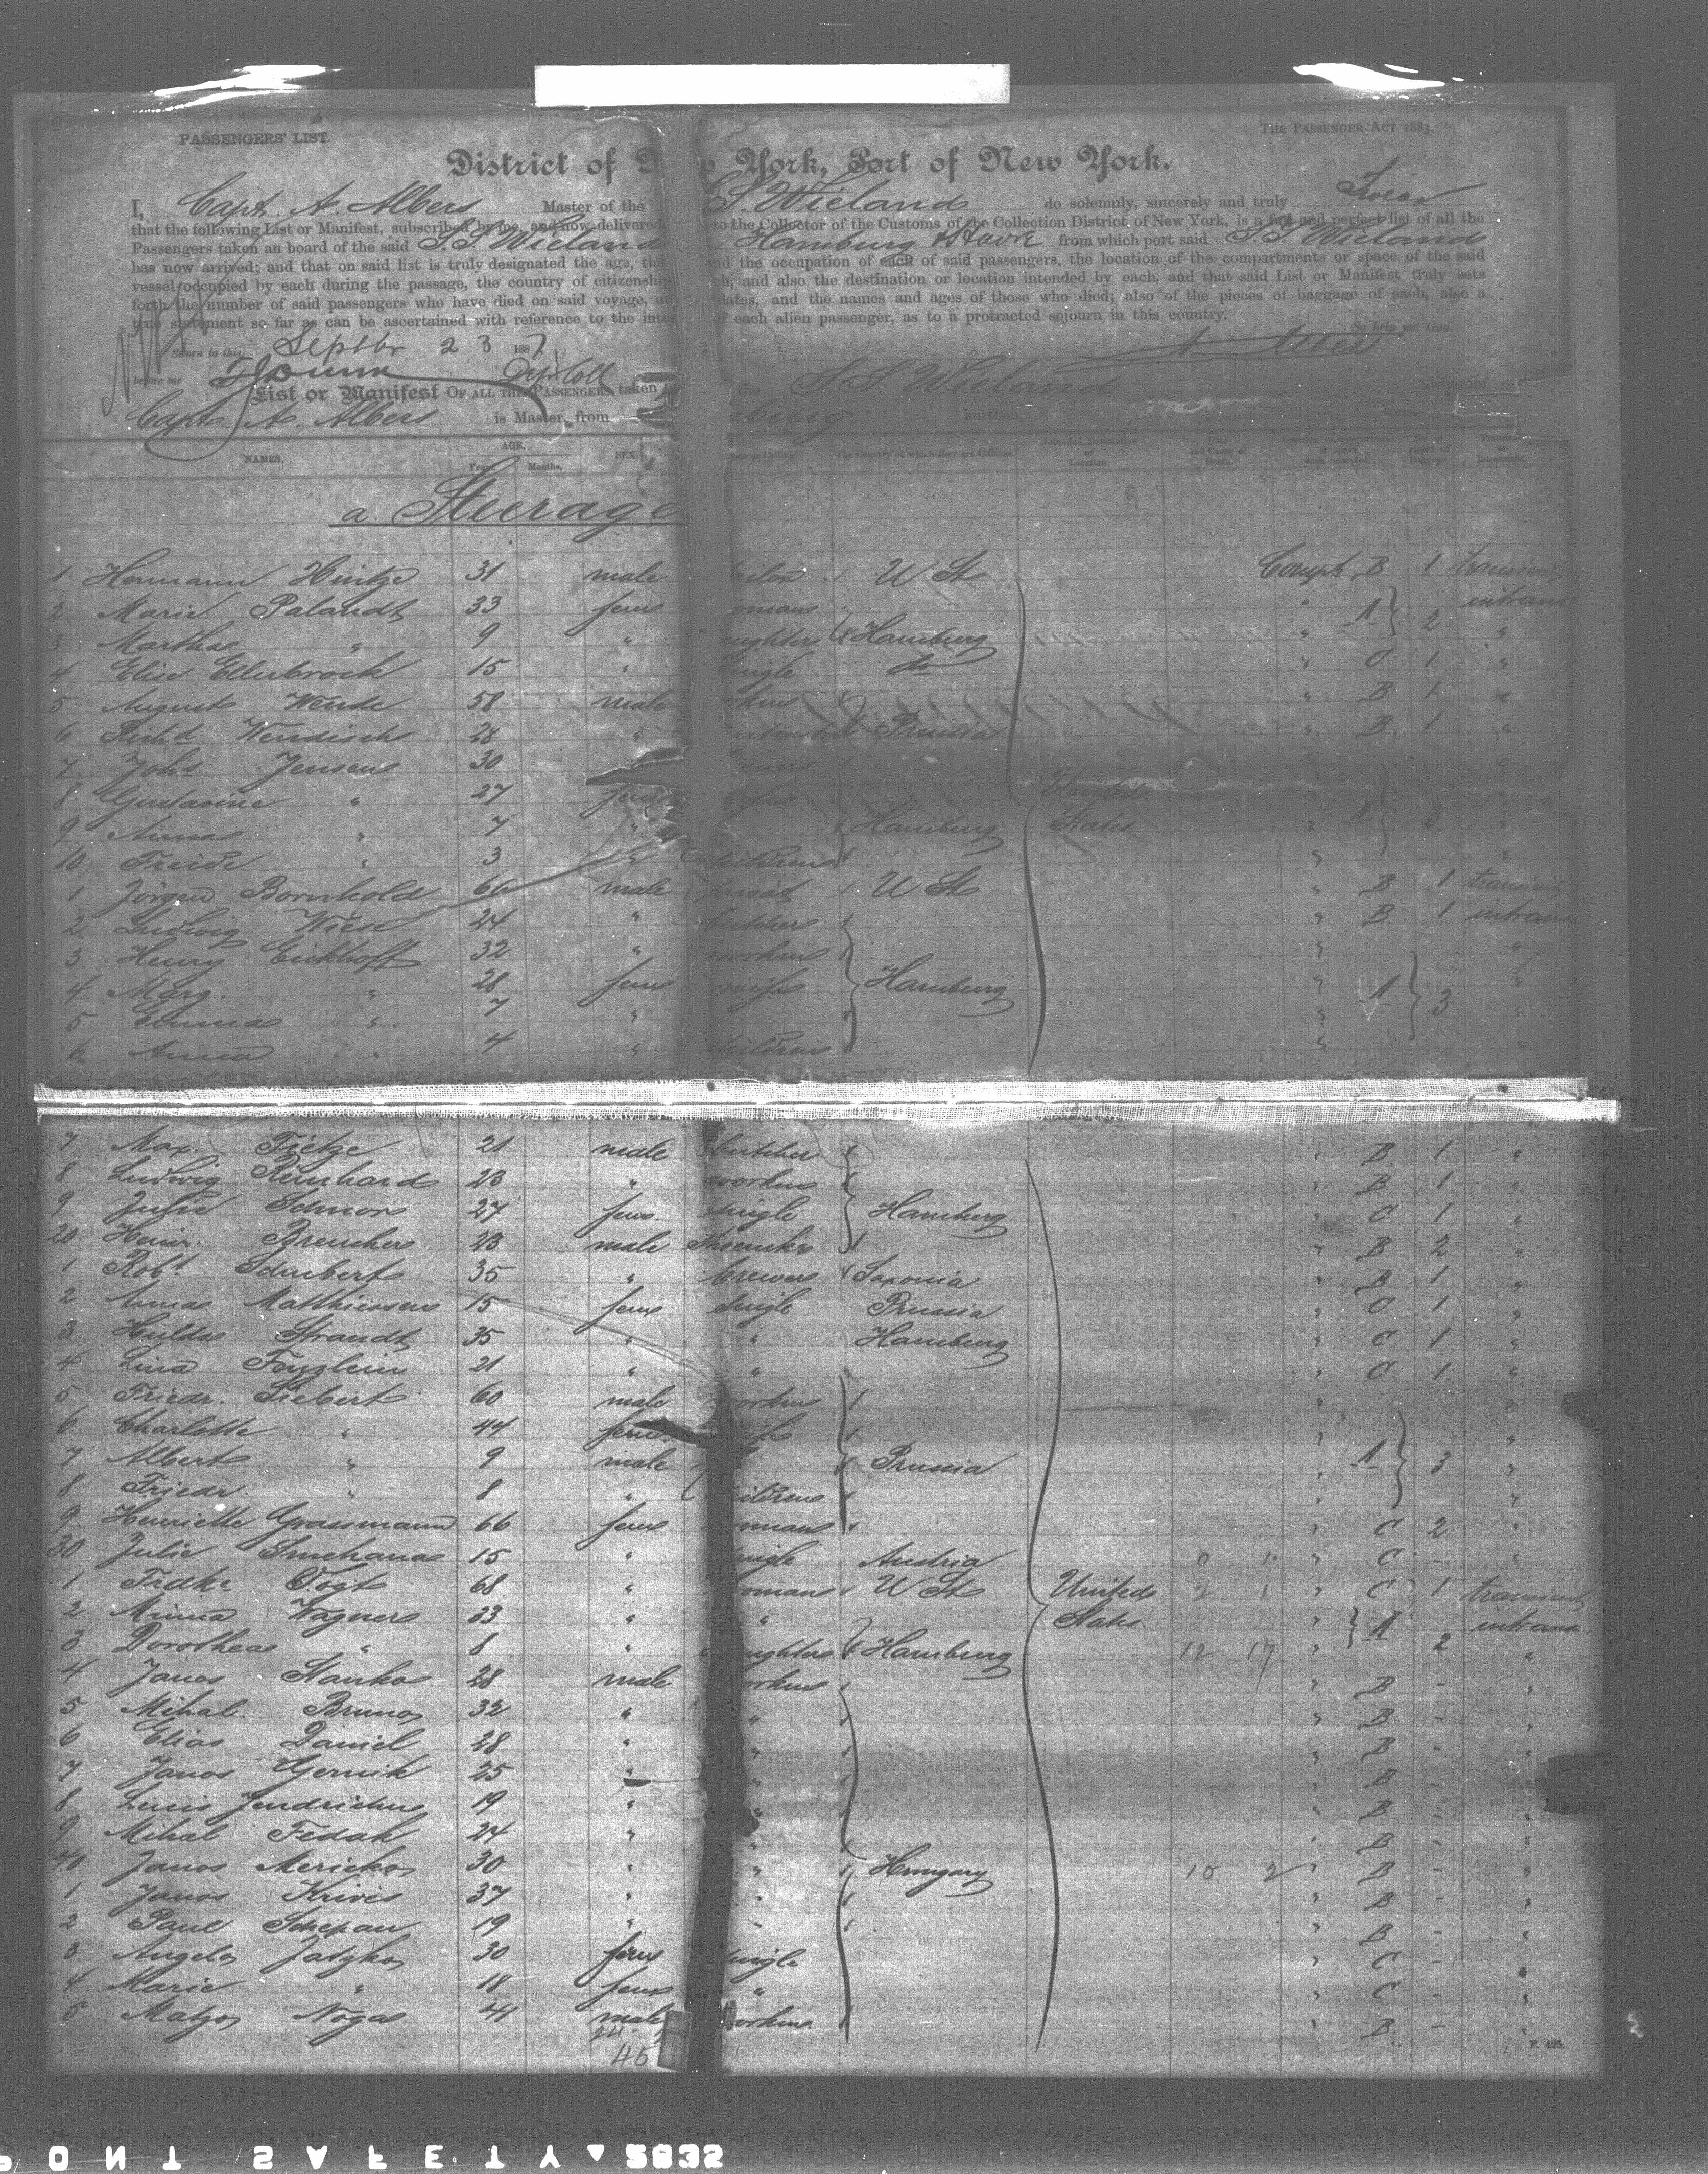 PASSENGERS' LIST.
THE PASSENGER ACT 1883.
District of New York, Port of New York.
I, Capt. A. Albers Master of the S.S. Wieland do solemnly, sincerely and truly Swear
that the following List or Manifest, subscribed by me, and now delivered to the Collector of the Customs of the Collection District of New York, is a full and perfect list of all the
Passengers taken on board of the said S.S. Wieland Hamburg & Havre from which port said S.S. Wieland
has now arrived; and that on said list is truly designated the age, the and the occupation of each of said passengers, the location of the compartments or space of the said
vessel occupied by each during the passage, the country of citizenship also the destination or location intended by each, and that said List or Manifest truly sets
forth the number of said passengers who have died on said voyage, dates, and the names and ages of those who died; also of the pieces of baggage of each, also a
true statement so far as can be ascertained with reference to the of each alien passenger, as to a protracted sojourn in this country.
So help me God.
Sworn to this Septbr 23 1887
A. Albers
before me
List or Manifest OF ALL THE PASSENGERS taken the S.S. Wieland whereof
Capt. A. Albers is Master, from burthen
NAMES. AGE. Years. Months. SEX. The Country of which they are Citizens. Intended Destination or Location. Date and Cause of Death.
a. Steerage
1 Hermann Hintze 31 male U St Compt. B 1 transient
2 Marie Palandt 33 fem A 2 intrans
3 Martha " 9 " Hamburg " "
4 Elise Ellerbrock 15 " do " C 1 "
5 August Wende 58 male " B 1 "
6 Richd Wendisch 28 " Prussia " B 1 "
7 Johs Jensen 30 "
8 Gustavine " 27 fem United
9 Anna " 7 " Hamburg States " A 3 "
10 Friede " 3 " children " "
1 Jörgen Bornhold 66 male U St " B 1 transient
2 Ludwig Wiese 24 " butcher " B 1 intrans
3 Henry Eickhoff 32 " workm " "
4 Marg. " 28 fem wife Hamburg " A 3 "
5 Emma " 7 " " "
6 Anna " 4 " children " "
7 Max Tietze 21 male butcher " B 1 "
8 Ludwig Reinhard 23 " workm " B 1 "
9 Julie 27 fem. single Hamburg " C 1 "
20 Heinr. 23 male " B 2 "
1 Robt Schubert 35 " brewer Saxonia " B 1 "
2 Anna Matthiessen 15 fem single Prussia " C 1 "
3 Hulda Strandt 35 " " Hamburg " C 1 "
4 Lina 21 " " " C 1 "
5 Friedr. Siebert 60 male workm " "
6 Charlotte " 44 fem. wife " "
7 Albert " 9 male Prussia " A 3 "
8 Friedr. " 8 " children " "
9 Henriette Grassmann 66 fem woman " C 2 "
30 Julie 15 " single Austria 0 1 " C - "
1 Fridke Vogt 68 " woman U St United 2 1 " C 1 transient
2 Minna Wagner 33 " " States. " A 2 intrans
3 Dorothea " 8 " Hamburg 12 17 " "
4 Janos Stanko 28 male workm " B - "
5 Mihal Bruno 32 " " " B - "
6 Elias Daniel 28 " " " B - "
7 Janos Gernik 25 " " " B - "
8 19 " " " B - "
9 Mihal Fedak 24 " " " B - "
40 Janos Mericko 30 " " Hungary 10 2 " B - "
1 Janos Krivis 37 " " " B - "
2 Paul Schepan 19 " " " B - "
3 Angela 30 fem single " C - "
4 Marie " 18 fem " " C - "
5 Noga 41 male workm " B - "
45
F. 425.
ONT SAFETY 2832